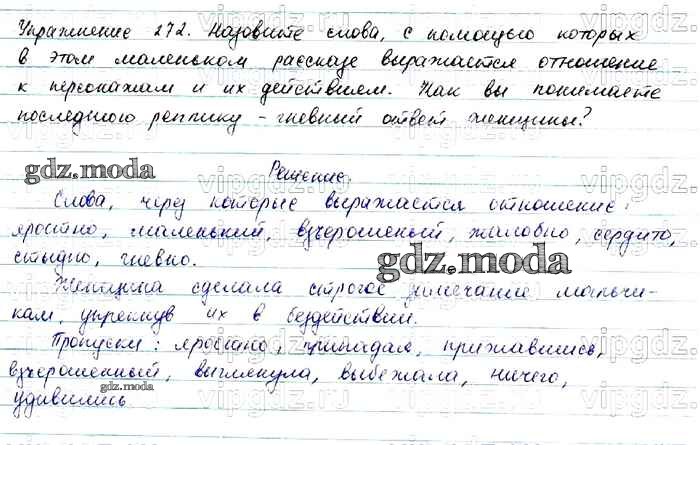 Упражнение 272. Назовите слова, с помощью которых
в этом маленьком рассказе выражается отношение
к персонажам и их действиям. Как вы понимаете
последнюю реплику - гневный ответ женщины?
gdz.moda
Решение:
Слова, через которые выражается отношение:
яростно, маленький, взъерошеный, жалобно, сердито,
стыдно, гневно.
gdz.moda
Женщина сделала строгое замечание мальчи-
кам, упрекнув их в бездействии.
Пропуски: яростно, припадая, прижавшись,
взъерошенный, выглянула, выбежала, ничего,
gdz.moda
удивились